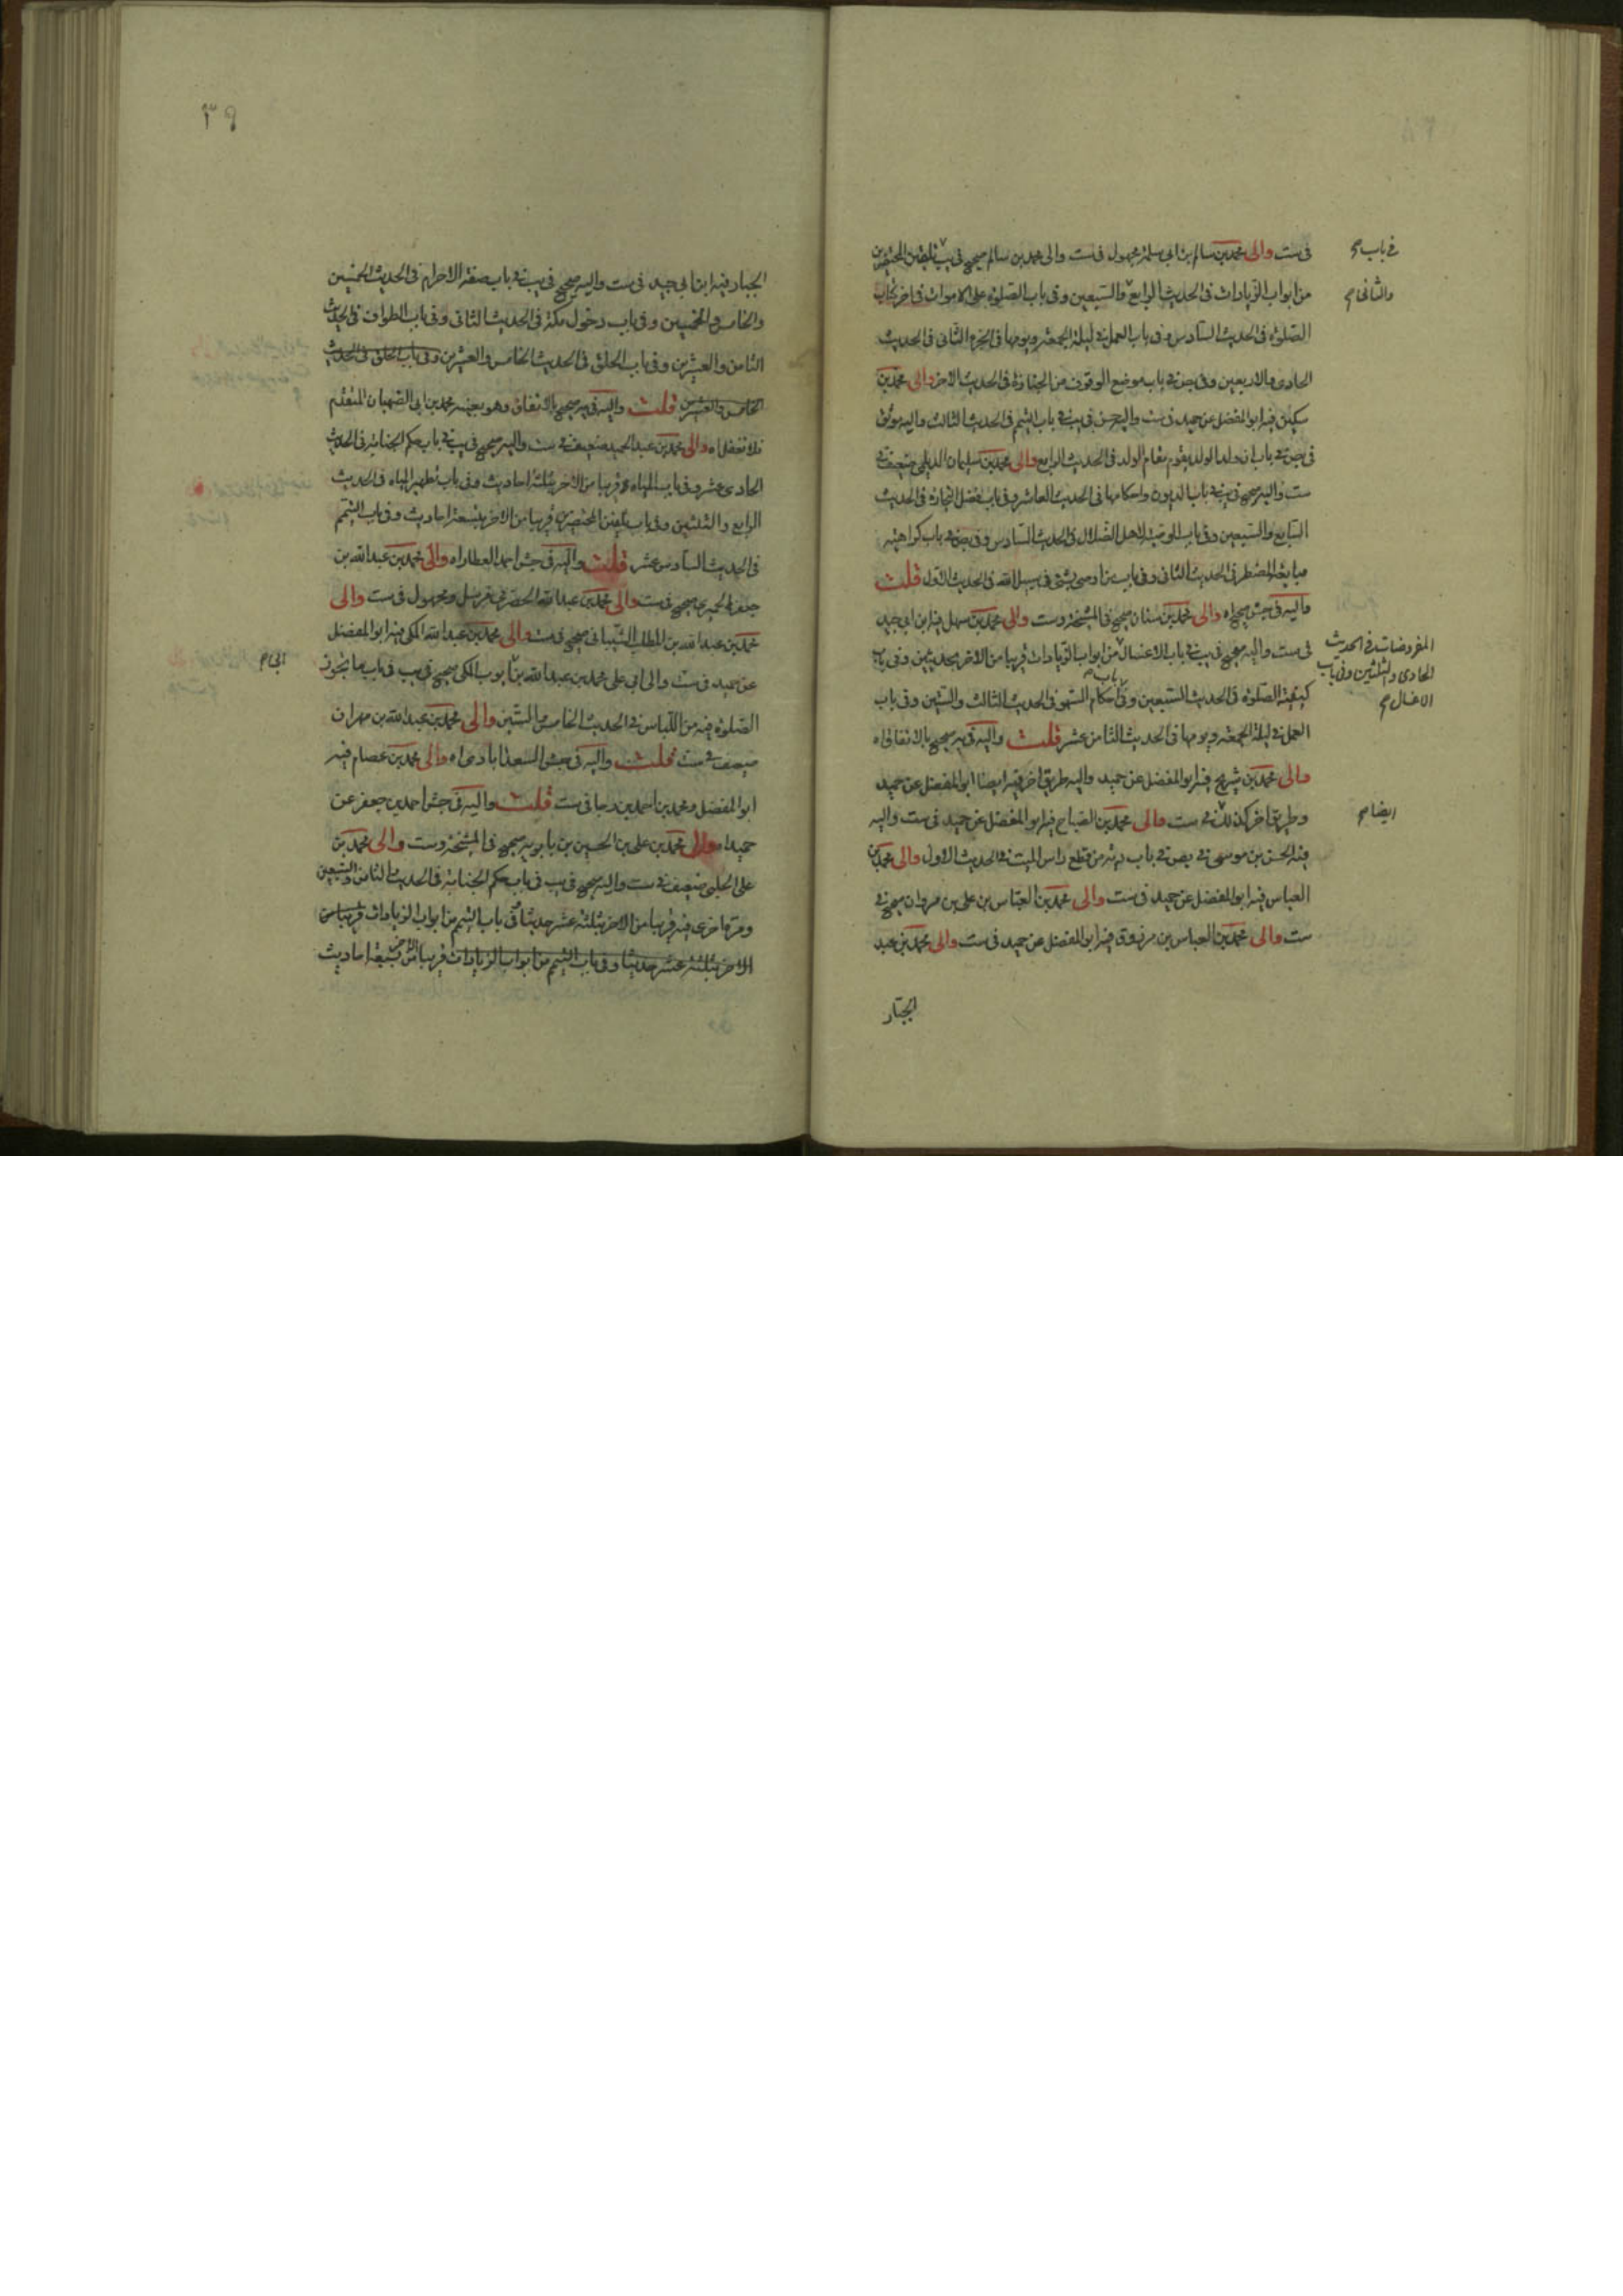 فى ست والى محمد بن سالم بن ابى سلمة مجهول فى ست والى محمد بن سالم صحيح فى يب تلقين المحتضرين
فى باب صح
من ابواب الزيادات فى الحديث الرابع والسبعين وفى باب الصلوة على الاموات فى اخر كتاب
والثانى صح
الصلوة فى الحديث السادس وفى باب العمل فى ليلة الجمعة ويومها فى الجزء الثانى فى الحديث
الحادى والاربعين وفى بص فى باب موضع الوقوف من الجنازة فى الحديث الاخر والى محمد بن
سكين فيه ابو المفضل عن حميد فى ست واليه حسن فى يب فى باب التيمم فى الحديث الثالث واليه موثق
فى بص فى باب ان ولد الولد يقوم مقام الولد فى الحديث الرابع والى محمد بن سليمان الديلمى ضعيف فى
ست واليه صحيح فى يب فى باب الديون واحكامها فى الحديث العاشر وفى باب فضل التجارة فى الحديث
السابع والسبعين وفى باب الوصية لاهل الضلال فى الحديث السادس وفى بص فى باب كراهية
مبايعة المضطر فى الحديث الثانى وفى باب من اوصى بشئ فى سبيل الله فى الحديث الاول قلت
واليه فى جش صحيح اه والى محمد بن سنان صحيح فى المشيخة وست والى محمد بن سهل فيه ابن ابى جيد
فى ست واليه صحيح فى يب فى باب الاغسال من ابواب الزيادات قريبا من الاخر بحديثين وفى باب
المفروضات فى الحديث
الحادى والثلثين وفى باب
الاغسال صح
كيفية الصلوة فى الحديث السبعين وفى باب احكام السهو فى الحديث الثالث والستين وفى باب
العمل فى ليلة الجمعة ويومها فى الحديث الثامن عشر قلت واليه فى يه صحيح بالاتفاق اه
والى محمد بن شريح فيه ابو المفضل عن حميد واليه طريق اخر فيه ايضا ابو المفضل عن حميد
وطريق اخر كذلك فى ست والى محمد بن الصباح فيه ابو المفضل عن حميد فى ست واليه
ايضا صح
فيه الحسن بن موسى فى بص فى باب دية من قطع راس الميت فى الحديث الاول والى محمد بن
العباس فيه ابو المفضل عن حميد فى ست والى محمد بن العباس بن على بن مروان صحيح فى
ست والى محمد بن العباس بن مرزوق فيه ابو المفضل عن حميد فى ست والى محمد بن عبد
الجبار
٣٩
الجبار فيه ابن ابى جيد فى ست واليه صحيح فى يب فى باب صفة الاحرام فى الحديث الخمسين
والخامس والخمسين وفى باب دخول مكة فى الحديث الثانى وفى باب الطواف فى الحديث
الثامن والعشرين وفى باب الحلق فى الحديث الخامس والعشرين وفى باب الحلق فى الحديث
الخامس والعشرين قلت واليه فى يه صحيح بالاتفاق وهو بعينه محمد بن ابى الصهبان المتقدم
فلا تغفل اه والى محمد بن عبد الحميد ضعيف فى ست واليه صحيح فى يب فى باب حكم الجنابة فى الحديث
الحادى عشر وفى باب المياه قريبا من الاخر بثلثة احاديث وفى باب تطهير المياه فى الحديث
الرابع والثلثين وفى باب تلقين المحتضرين قريبا من الاخر بتسعة احاديث وفى باب التيمم
فى الحديث السادس عشر قلت واليه فى جش احمد العطار اه والى محمد بن عبد الله بن
جعفر الحميرى صحيح فى ست والى محمد بن عبد الله الحضرمى مرسل ومجهول فى ست والى
محمد بن عبد الله بن المطلب الشيبانى صحيح فى ست والى محمد بن عبد الله المكى فيه ابو المفضل
عن حميد فى ست والى ابى على محمد بن عبد الله بن ايوب المكى صحيح فى يب فى باب ما يجوز
الصلوة فيه من اللباس فى الحديث الخامس والستين والى محمد بن عبد الله بن مهران
ضعيف فى ست قلت واليه فى جش السعدابادى اه والى محمد بن عصام فيه
ابو المفضل ومحمد بن احمد بن رجا فى ست قلت واليه فى جش احمد بن جعفر عن
حميد اه والى محمد بن على بن الحسين بن بابويه صحيح فى المشيخة وست والى محمد بن
على الحلبى ضعيف فى ست واليه صحيح فى يب فى باب حكم الجنابة فى الحديث الثامن والسبعين
ومرة اخرى فيه قريبا من الاخر بثلثة عشر حديثا وفى باب التيمم من ابواب الزيادات قريبا من
الاخر بثلثة عشر حديثا وفى باب التيمم من ابواب الزيادات قريبا من الاخر بسبعة احاديث